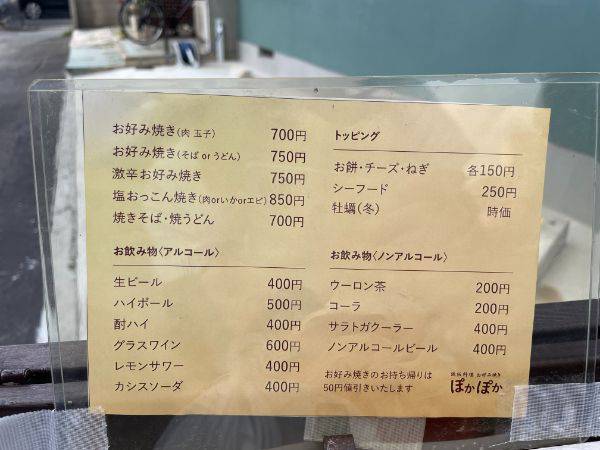 お好み焼き(肉 玉子) 700円
お好み焼き(そば or うどん) 750円
激辛お好み焼き 750円
塩おっこん焼き(肉orいかorエビ) 850円
焼きそば・焼うどん 700円
お飲み物〈アルコール〉
生ビール 400円
ハイボール 500円
酎ハイ 400円
グラスワイン 600円
レモンサワー 400円
カシスソーダ 400円
トッピング
お餅・チーズ・ねぎ 各150円
シーフード 250円
牡蠣(冬) 時価
お飲み物〈ノンアルコール〉
ウーロン茶 200円
コーラ 200円
サラトガクーラー 400円
ノンアルコールビール 400円
お好み焼きのお持ち帰りは
50円値引きいたします
鉄板料理 お好み焼き
ぽかぽか